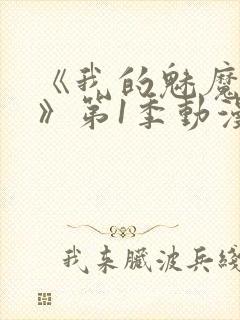 《我的魅魔
》第1季動漫
我来臟波兵綫